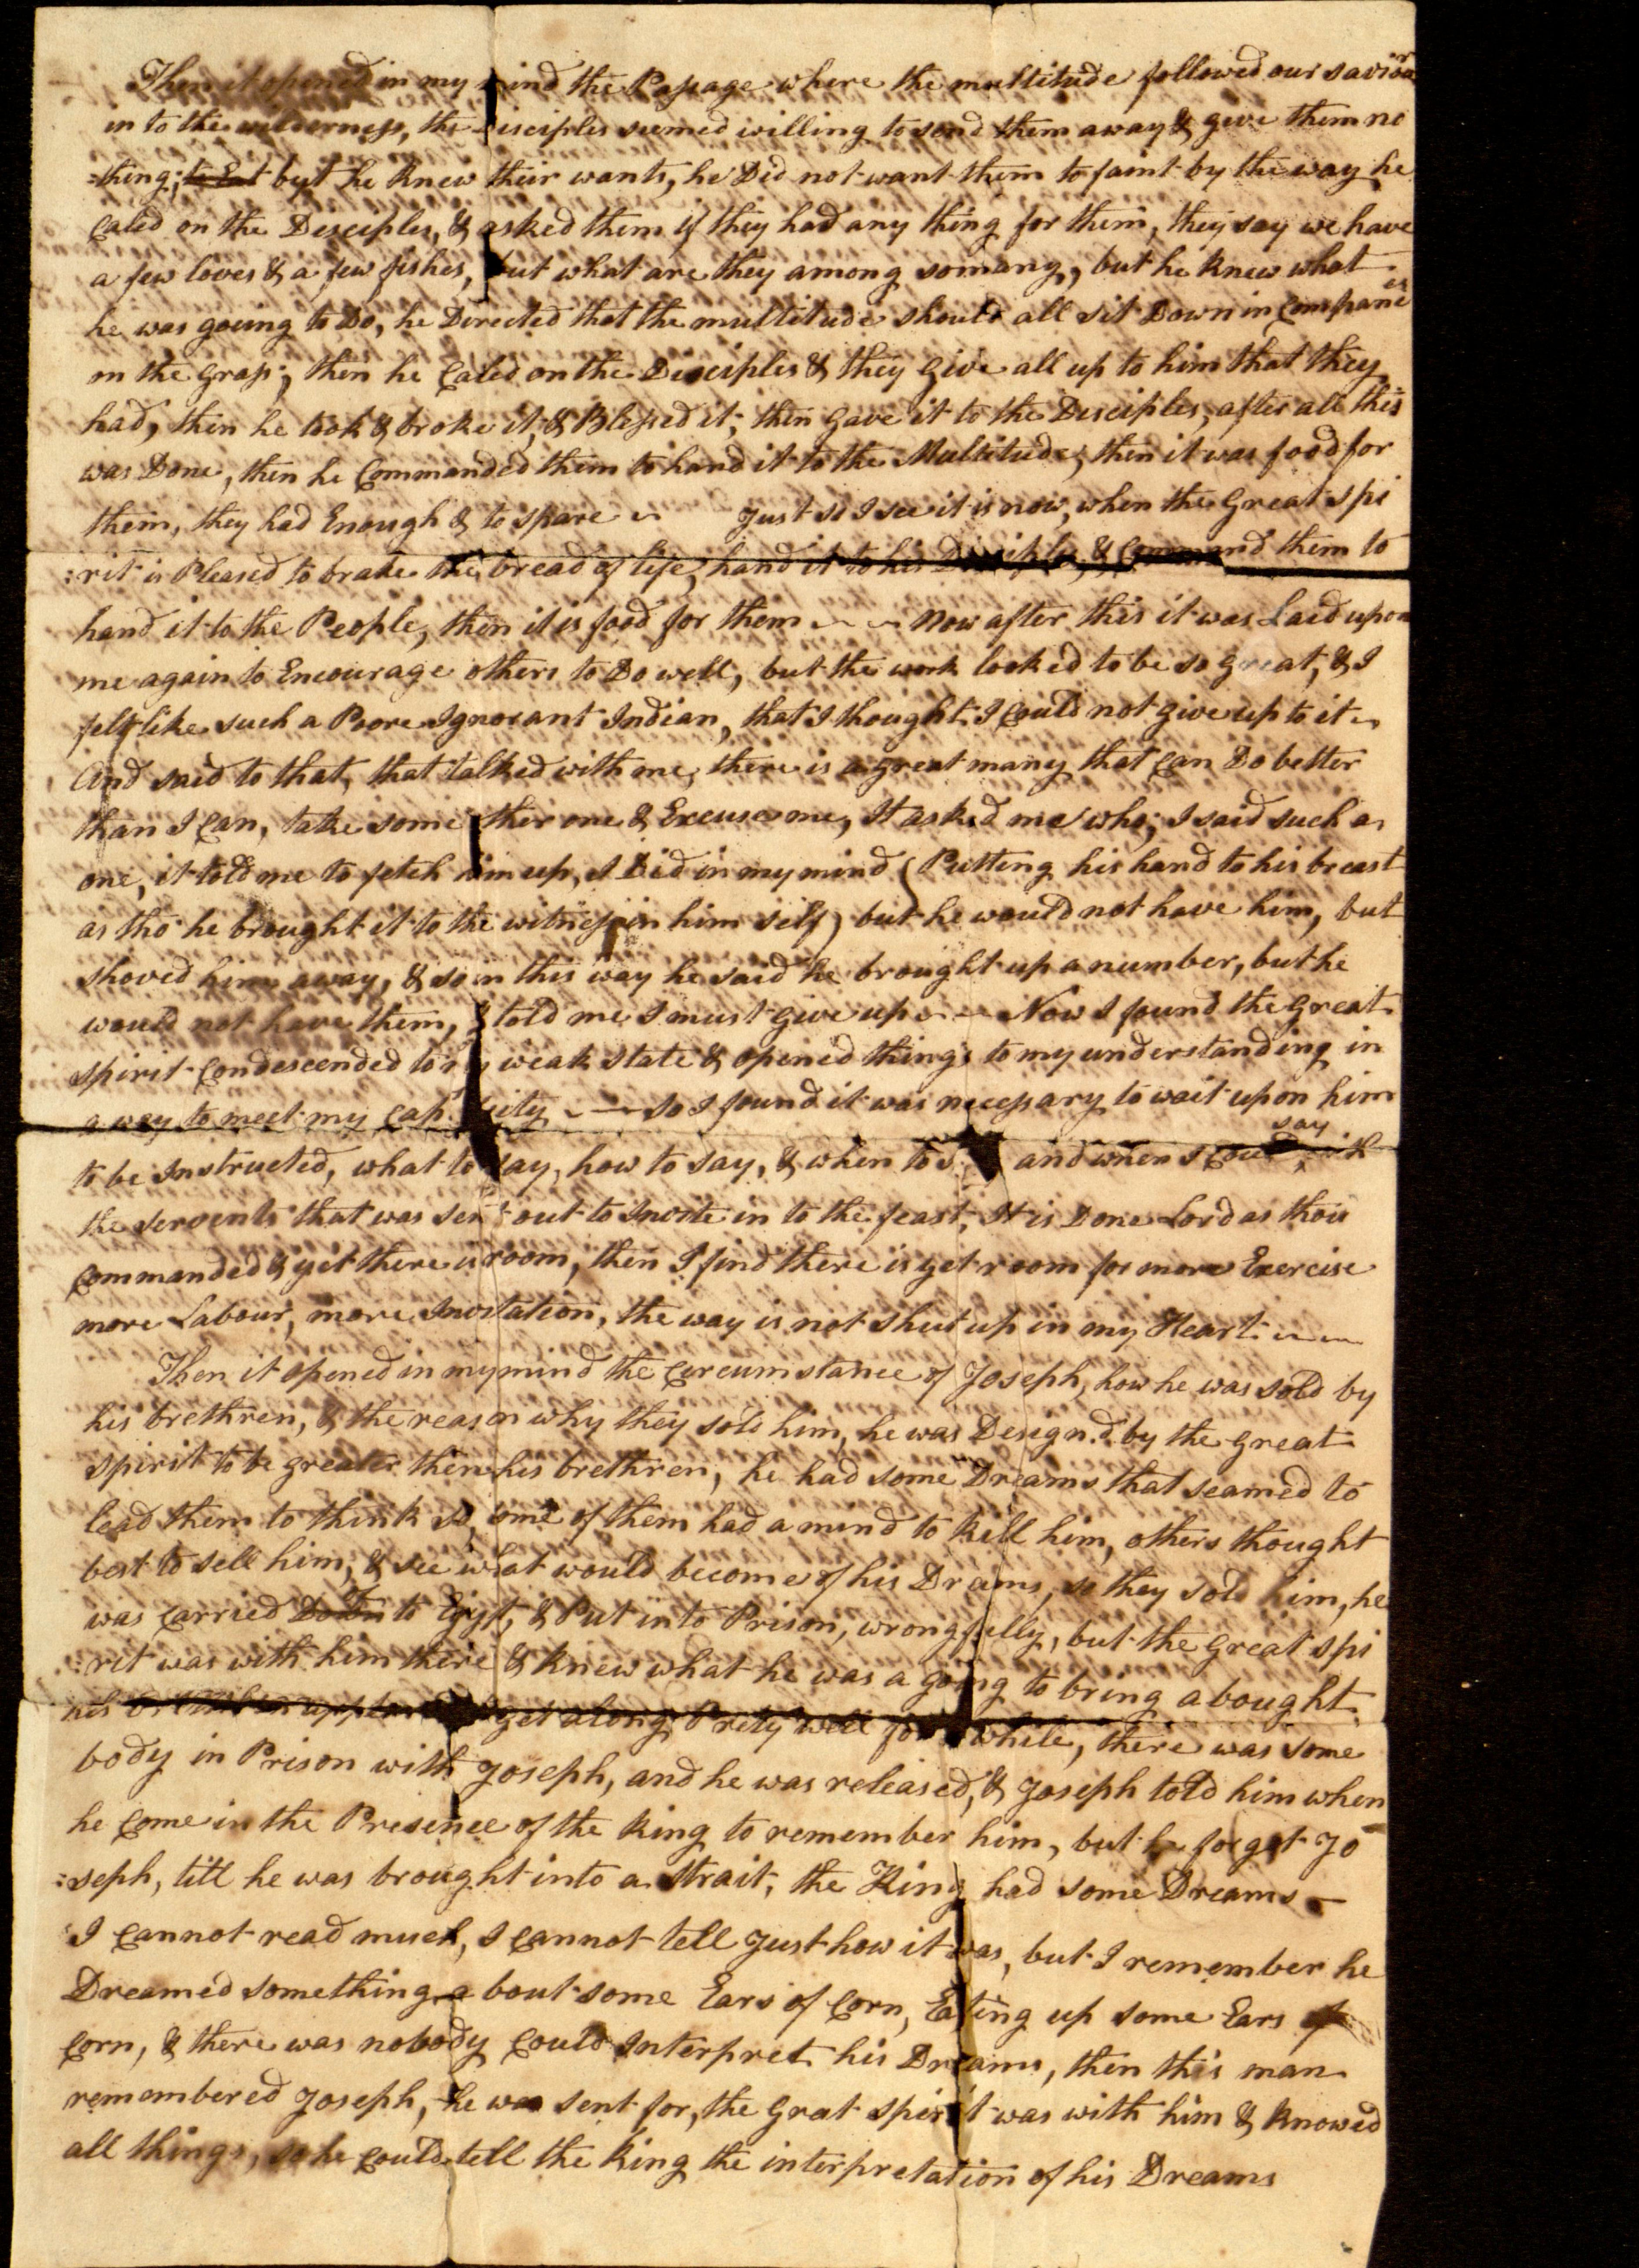 Then it opened in my mind the Passage where the multitude followed our saviour
in to the wilderness, the Disciples seemed willing to send them away & give them no
=thing; to Eat but he knew their wants, he Did not want them to faint by the way he
Caled on the Desciples, & asked them if they had any thing for them, they say we have
a few loves & a few fishes, but what are they among somany, but he knew what
he was going to Do, he Directed that the multitude should all sit Down in Companies
on the Grass; then he Caled on the Disciples & they Give all up to him that they
had, then he took & broke it, & Blessed it; then Gave it to the Disciples, after all this
was Done, then he Commanded them to hand it to the Multitude, then it was food for
them, they had Enough & to spare ~ Just so I see it is now, when the Great spi
:rit is Pleased to brake the bread of life, hand it to his Disciples, & Command them to
hand it to the People, then it is food for them ~ ~ Now after this it was Laid upon
me again to Encourage others to Do well, but the work looked to be so great, & I
felt like such a Poore Ignorant Indian, that I thought I Could not give up to it ~
And said to that, that talked with me, there is a great many that Can Do better
than I Can, take some other one & Excuse me, It asked me who; I said such a
one, it told me to fetch him up, I Did in my mind (Putting his hand to his breast
as tho he brought it to the witness in him self) but he would not have him, but
shoved him away, & so in this way he said he brought up a number, but he
would not have them, & told me I must give up ~ ~ Now I found the Great
spirit Condescended to my weak state & opened things to my understanding in
a way to meet my Capacity ~ so I found it was necessary to wait upon him
to be Instructed, what to say, how to say, & when to and when I Could say with
the servents that was sent out to Invite in to the feast, It is Done Lord as thou
Commanded & yet there is room, then I find there is yet room for more Exercise
more Labour, more Invitation, the way is not shut up in my Heart ~ ~
Then it opened in my mind the Circumstance of Joseph, how he was sold by
his brethren, & the reason why they sold him, he was Design.d by the great
spirit to be greater then his brethren, he had some Dreams that seamed to
lead them to think so, some of them had a mind to kill him, others thought
best to sell him, & see what would become of his Dreams, so they sold him, he
was Carried Down to Egypt, & Put into Prison, wrongfully, but the great spi
:rit was with him there & knew what he was a going to bring abought.
his brethren get along Prety well for a while, there was some
body in Prison with Joseph, and he was released, & Joseph told him when
he Come in the Presence of the King to remember him, but he forgot Jo
:seph, till he was brought into a strait; the King had some Dreams ~
I Cannot read much, I Cannot tell Just how it was, but I remember he
Dreamed something about some Ears of Corn, Eating up some Ears of
Corn, & there was nobody Could Interpret his Dreams, then this man
remembered Joseph, he was sent for, the Great spirit was with him & knowed
all things, so he Could tell the King the interpretation of his Dreams